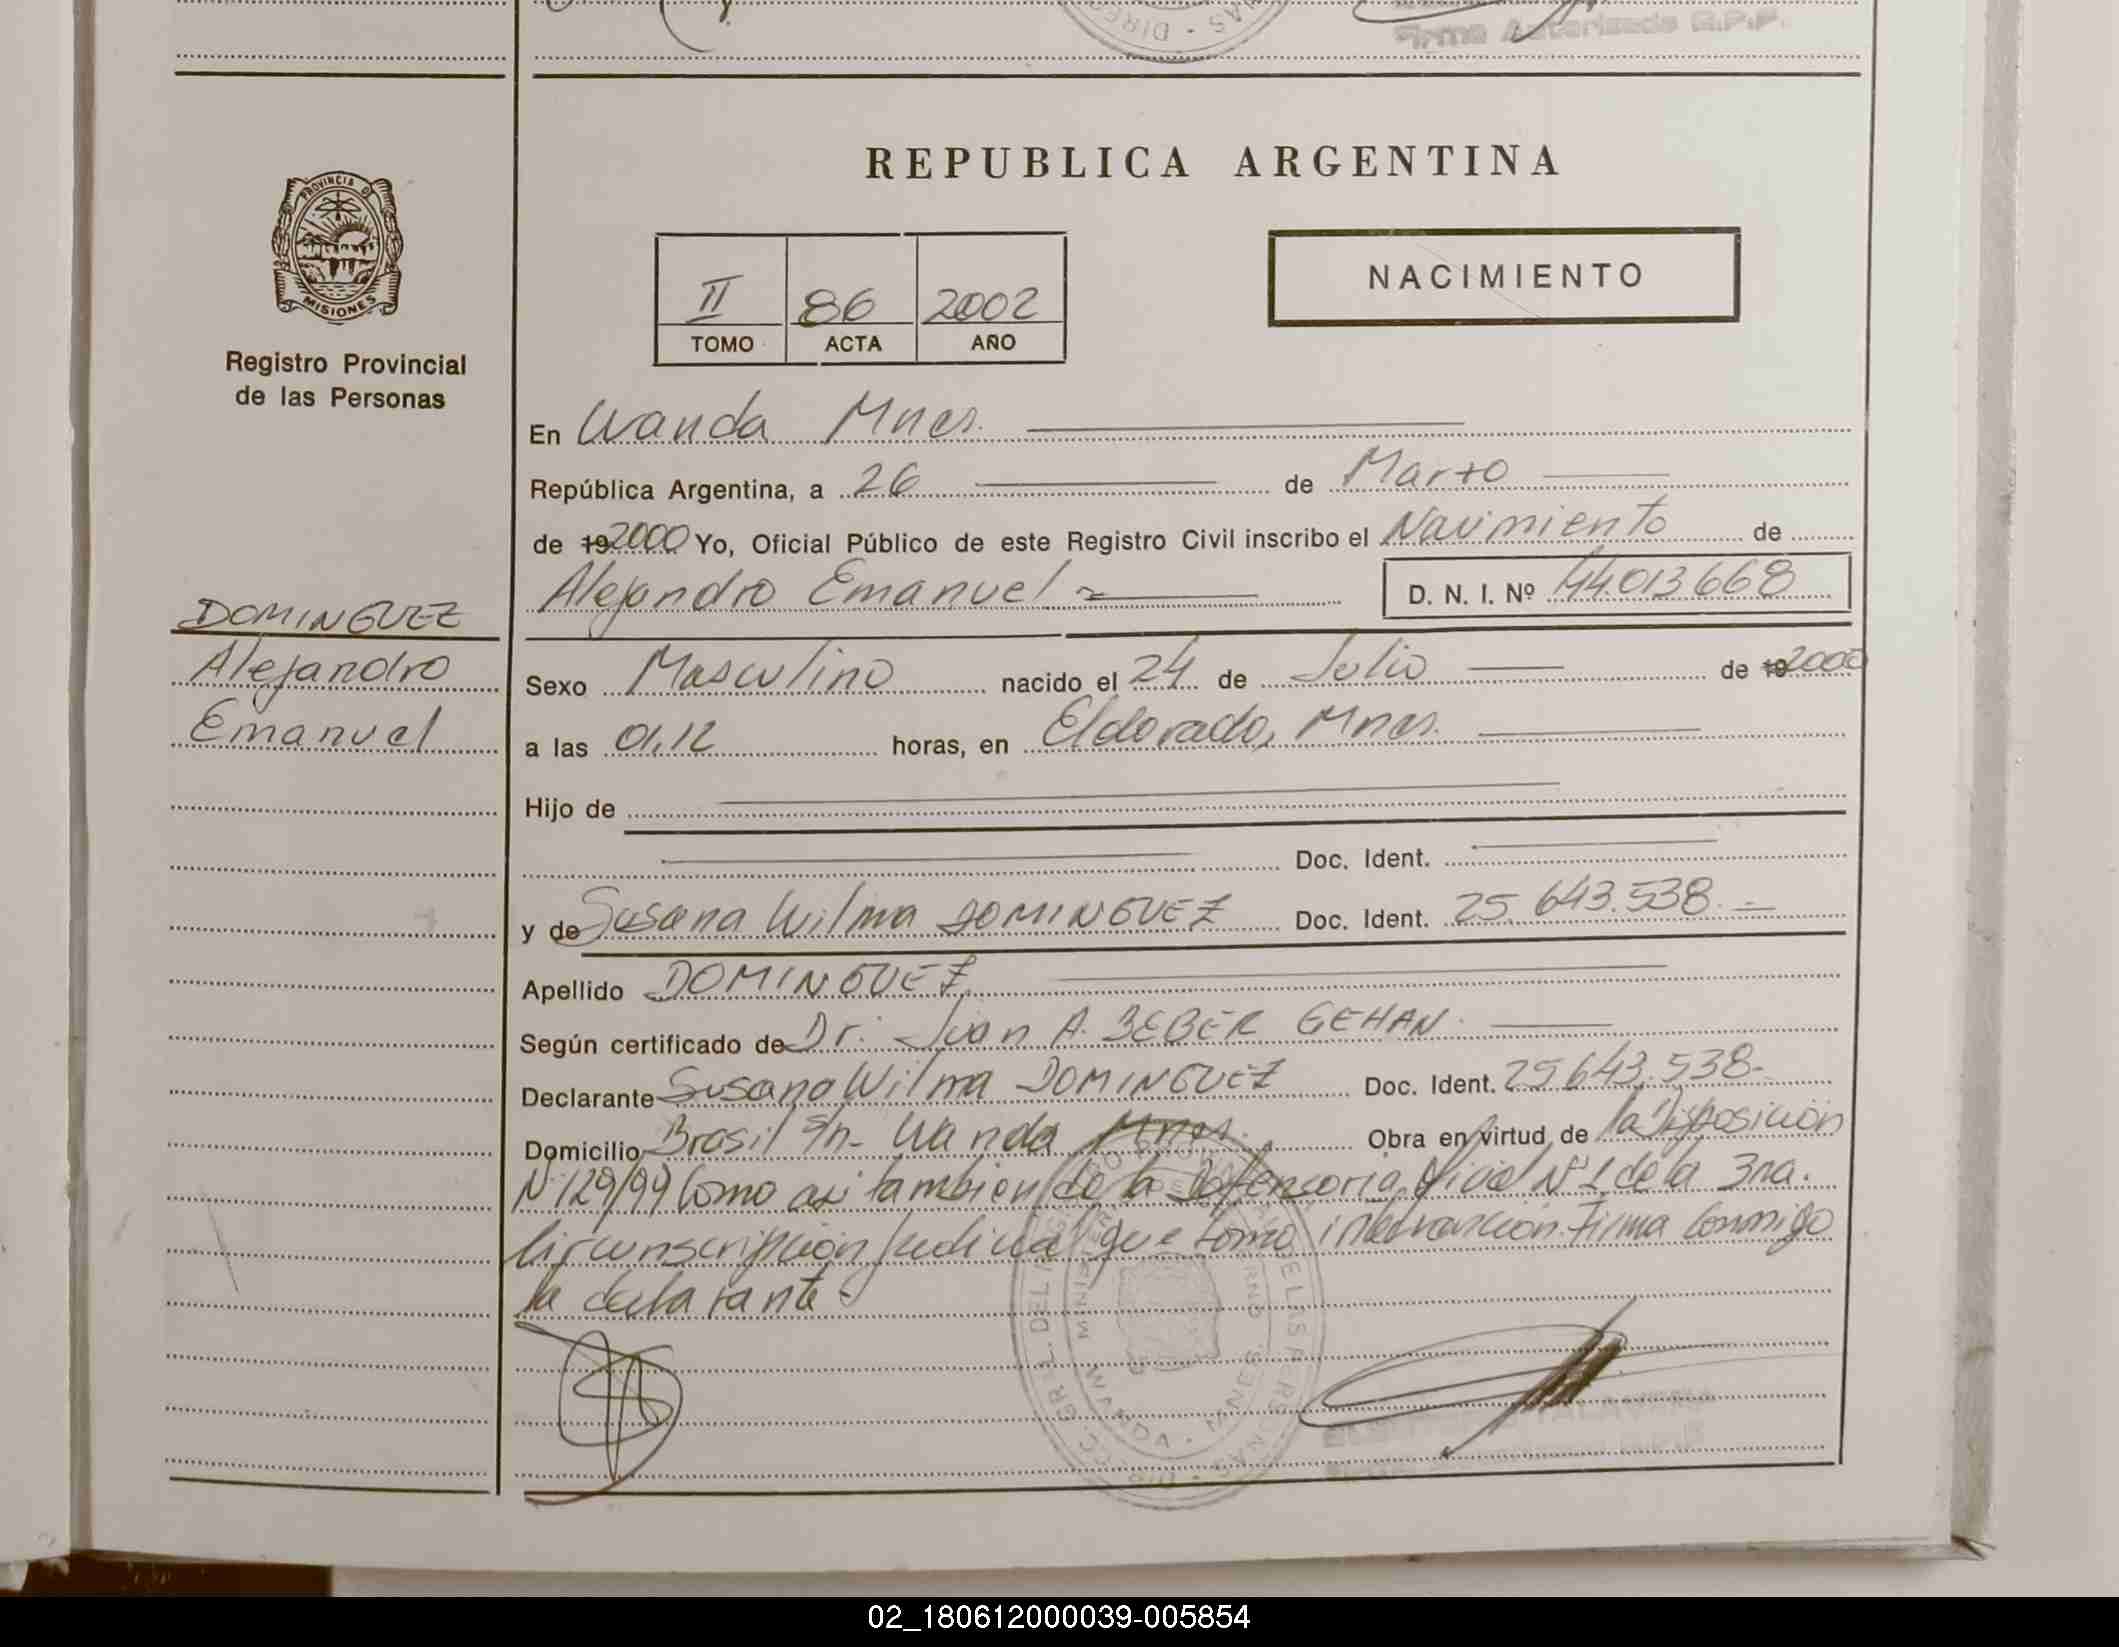 Firma Autorizada R.P.P.
REPUBLICA ARGENTINA
PROVINCIA D
MISIONES
Registro Provincial
de las Personas
NACIMIENTO
II 86 2002
TOMO ACTA AÑO
En Wanda Mnes.
República Argentina, a 26 de Marzo
de 19 2000 Yo, Oficial Público de este Registro Civil inscribo el Nacimiento de
Alejandro Emanuel D. N. I. Nº 44.013668
DOMINGUEZ
Alejandro
Emanuel
Sexo Masculino nacido el 24 de Julio de 19 2000
a las 01,12 horas, en Eldorado, Mnes.
Hijo de
Doc. Ident.
y de Susana Wilma DOMINGUEZ Doc. Ident. 25.643.538.-
Apellido DOMINGUEZ
Según certificado de Dr. Juan A. BEBER GEHAN.
Declarante Susana Wilma DOMINGUEZ Doc. Ident. 25643.538-
Domicilio Brasil S/n- Wanda Mnes. Obra en virtud de la Disposición
Nº 129/99 Como asi tambien de la Defensoria Oficial Nº 1 de la 3ra.
Circunscripción Judicial que tomo intervención. Firma Conmigo
la declarante.
02_180612000039-005854